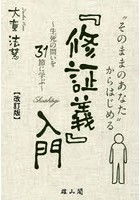 “そのままのあなた”
からはじめる
『修証義』入門
～生死の問いを
31節に学ぶ～
Shushōgi
【改訂版】
大童法慧
雄山閣